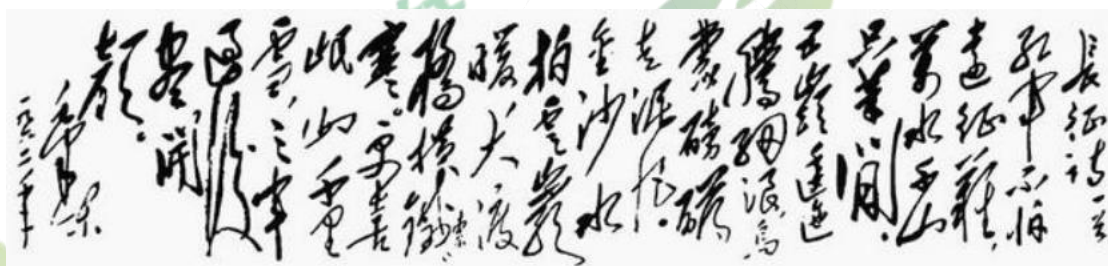 長征詩一首
紅軍不怕
遠征難,
萬水千山
只等閒。
五嶺逶迤
騰細浪,烏
蒙磅礴
走泥丸。
金沙水
拍雲巖
暖,大渡
橋橫鐵索
寒。更喜
岷山千里
雪,三軍
過後
盡開
顏。
毛澤東
一九六二年